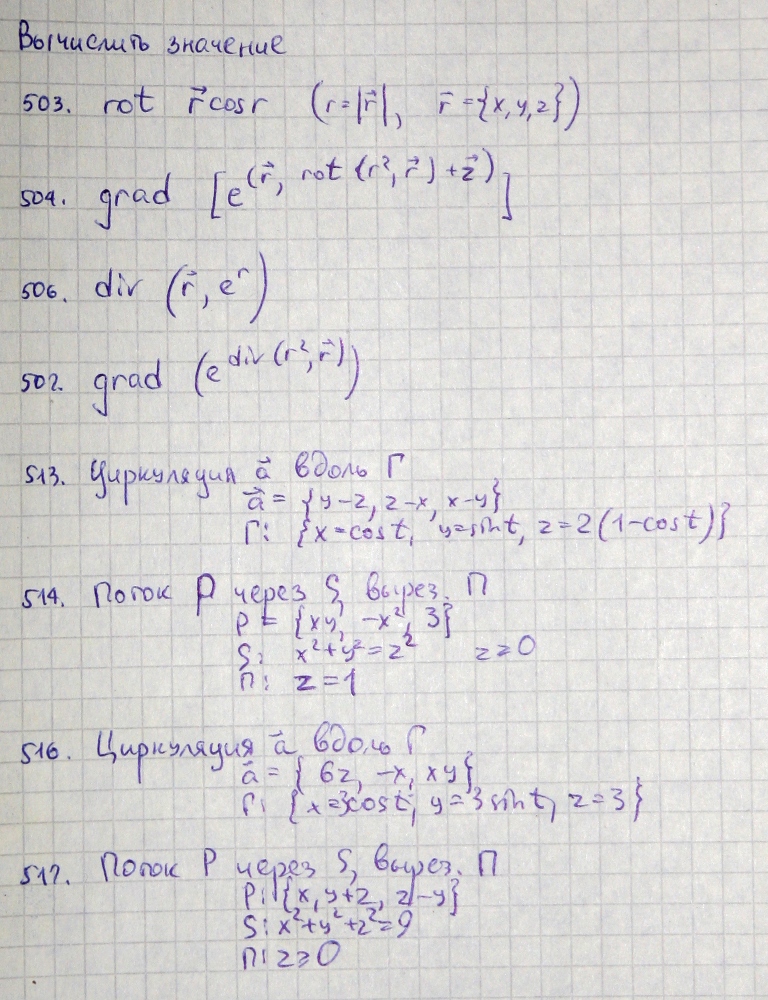 Вычислить значение
503. rot r⃗cosr (r=|r⃗|, r̄={x,y,z})
504. grad [e^(r⃗, rot (r², r⃗) + z⃗)]
506. div (r⃗, eʳ)
507. grad (e^div(r², r⃗))
513. Циркуляция a⃗ вдоль Г
a⃗ = {y-z, z-x, x-y}
Г: {x=cost, y=sint, z=2(1-cost)}
514. Поток P через S, вырез. П
P = {xy, -x², 3}
S: x²+y²=z² z≥0
П: z=1
516. Циркуляция a⃗ вдоль Г
a⃗ = {6z, -x, xy}
Г: {x=3cost, y=3sint, z=3}
517. Поток P через S, вырез. П
P: {x, y+z, z-y}
S: x²+y²+z²=9
П: z≥0